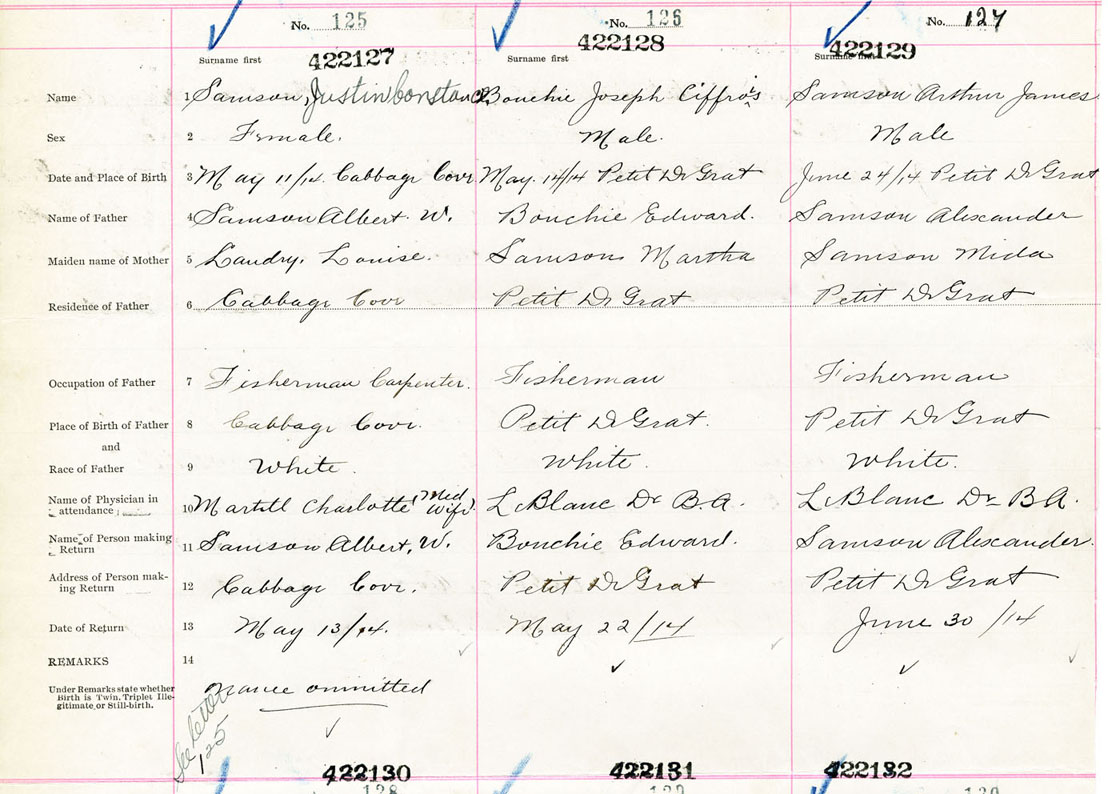 No. 125 No. 126 No. 127
422127 422128 422129
Surname first Surname first Surname first
Name 1 Samson, Justin Constance Bouchie Joseph Ciffrois Samson Arthur James
Sex 2 Female. Male. Male
Date and Place of Birth 3 May 11/14. Cabbage Cove May. 14/14 Petit De Grat June 24/14 Petit De Grat
Name of Father 4 Samson Albert. W. Bouchie Edward. Samson Alexander
Maiden name of Mother 5 Landry, Louise. Samson Martha Samson Mida
Residence of Father 6 Cabbage Cove Petit De Grat Petit De Grat
Occupation of Father 7 Fisherman Carpenter. Fisherman Fisherman
Place of Birth of Father 8 Cabbage Cove. Petit De Grat. Petit De Grat
and
Race of Father 9 White. White. White.
Name of Physician in
attendance 10 Martell Charlotte (Med Wife) LeBlanc Dr B.A. LeBlanc Dr B A.
Name of Person making
Return 11 Samson Albert, W. Bouchie Edward. Samson Alexander.
Address of Person mak-
ing Return 12 Cabbage Cove. Petit De Grat Petit De Grat
Date of Return 13 May 13/14. May 22/14 June 30/14
REMARKS 14
Under Remarks state whether
Birth is Twin, Triplet Ille-
gitimate, or Still-birth.
Name ommitted
See Letter
125
422130 422131 422132
128 129 130